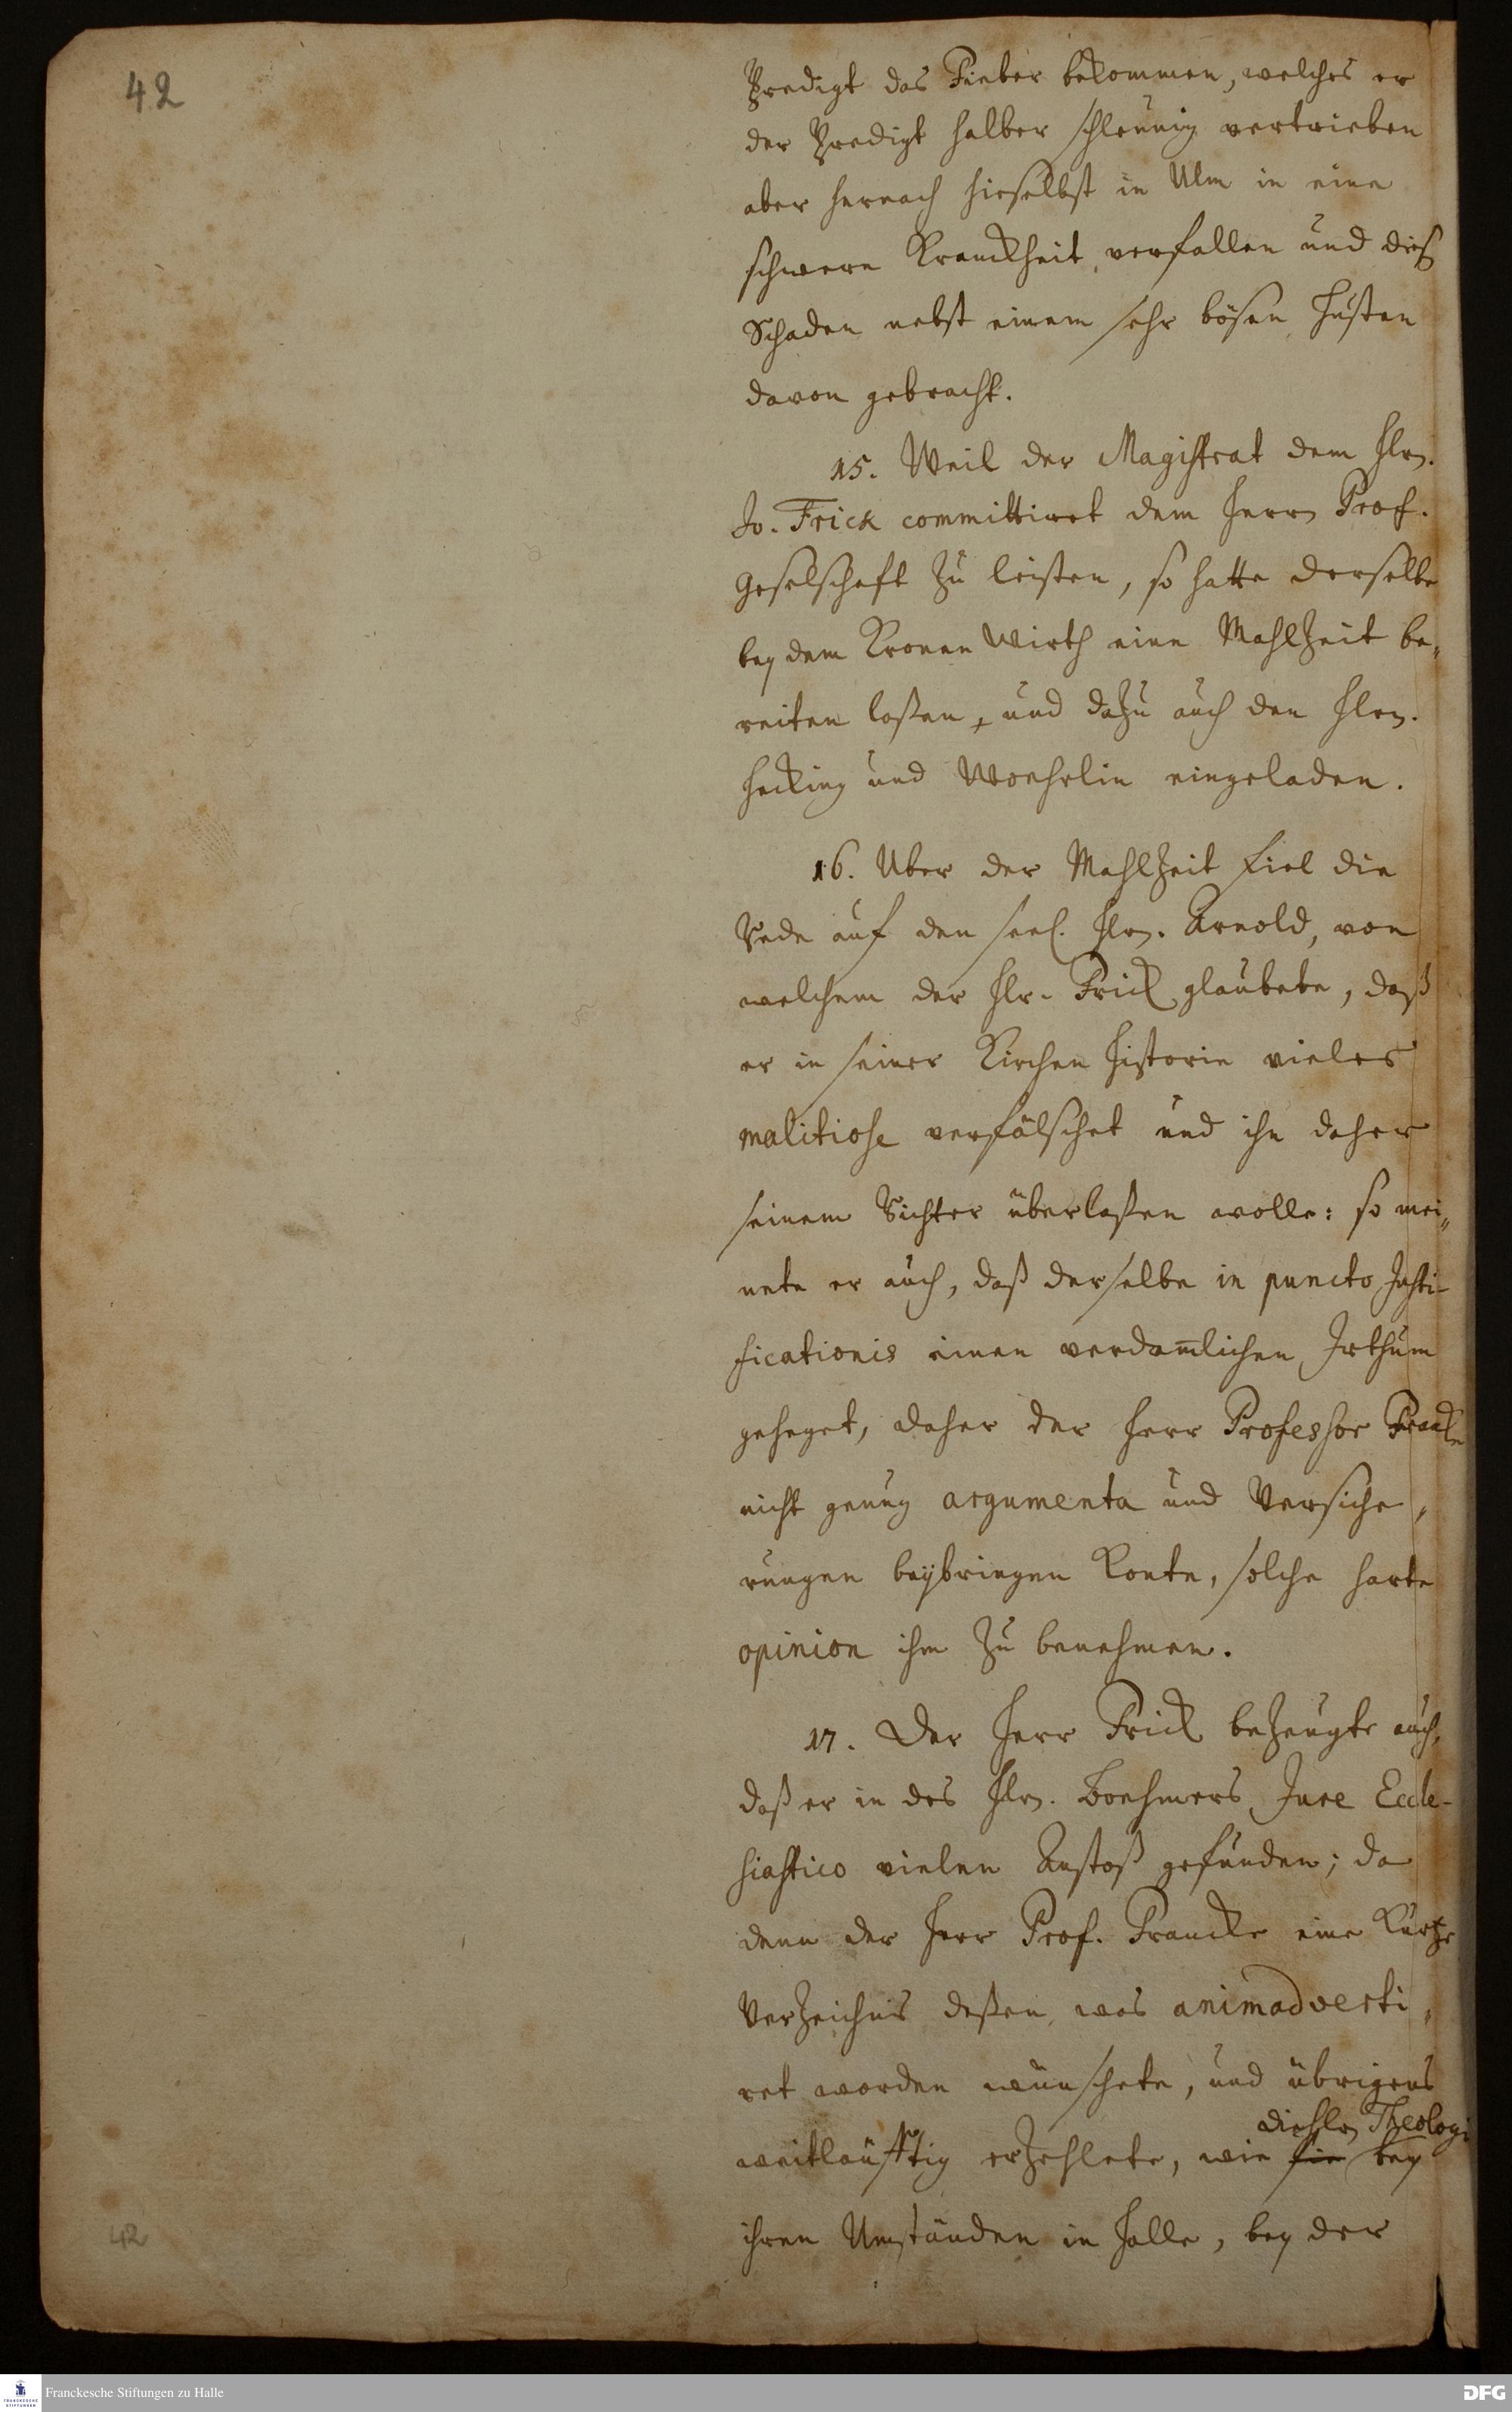 42
Predigt das Fieber bekommen, welches er
der Predigt halber schleunig vertrieben
aber hernach hieselbst in Ulm in eine
schwere Kranckheit verfallen und dieß
Schaden nebst einem sehr bösen Husten
davon gebracht.
15. Weil der Magistrat dem Hln.
Jo. Frick committiret dem Herrn Prof.
Geselschaft zu leisten, so hatte derselbe
bey dem Kronen Wirth eine Mahlzeit be-
reiten laßen, und dazu auch den Hln.
Hecking und Woehrlin eingeladen.
16. Uber der Mahlzeit fiel die
Rede auf den seel. Hln. Arnold, von
welchem der Hlr. Frick glaubete, daß
er in seiner Kirchen Historie vieles
malitiose verfälschet und ihn daher
seinem Richter überlaßen wolle: so mei-
nete er auch, daß derselbe in puncto Justi-
ficationis einen verdam̄lichen Irthum
geheget, daher der Herr Professor Francke
nicht genug argumenta und Versiche-
rungen beybringen konte, solche harte
opinion ihm zu benehmen.
17. Der Herr Frick bezeugte auch,
daß er in des Hln. Boehmers Jure Eccle-
siastico vielen Anstoß gefunden; da
denn der Herr Prof. Francke eine kurtze
Verzeichnis deßen, was animadverti-
ret worden wünschete, und übrigens
die Hln Theologi
weitläufftig erzehlete, wie sie bey
ihren Umständen in Halle, bey der
42
Franckesche Stiftungen zu Halle
FRANCKESCHE STIFTUNGEN
DFG